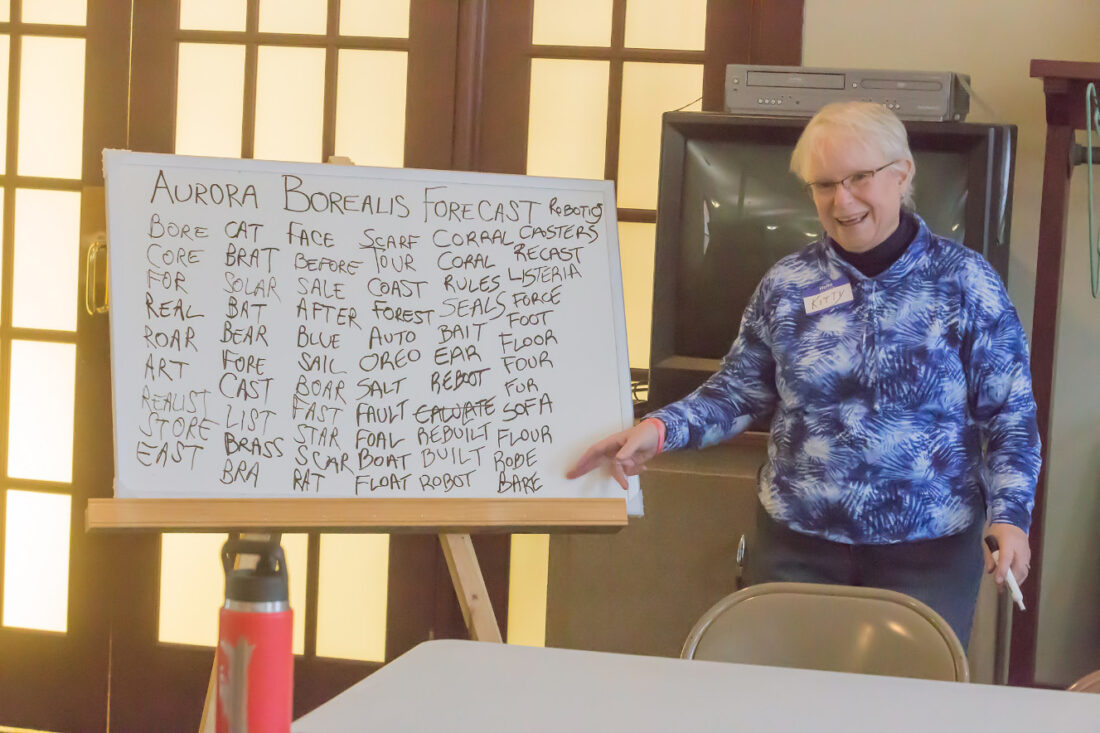 AURORA BOREALIS FORECAST
BORE
CORE
FOR
REAL
ROAR
ART
REALIST
STORE
EAST
CAT
BRAT
SOLAR
BAT
BEAR
FORE
CAST
LIST
BRASS
BRA
FACE
BEFORE
SALE
AFTER
BLUE
SAIL
BOAR
FAST
STAR
SCAR
RAT
SCARF
TOUR
COAST
FOREST
AUTO
OREO
SALT
FAULT
FOAL
BOAT
FLOAT
CORRAL
CORAL
RULES
SEALS
BAIT
EAR
REBOT
REBUILT
BUILT
ROBOT
ROBOTICS
CASTERS
RECAST
LISTERIA
FORCE
FOOT
FLOOR
FOUR
FUR
SOFA
FLOUR
ROBE
BARE
KITTY